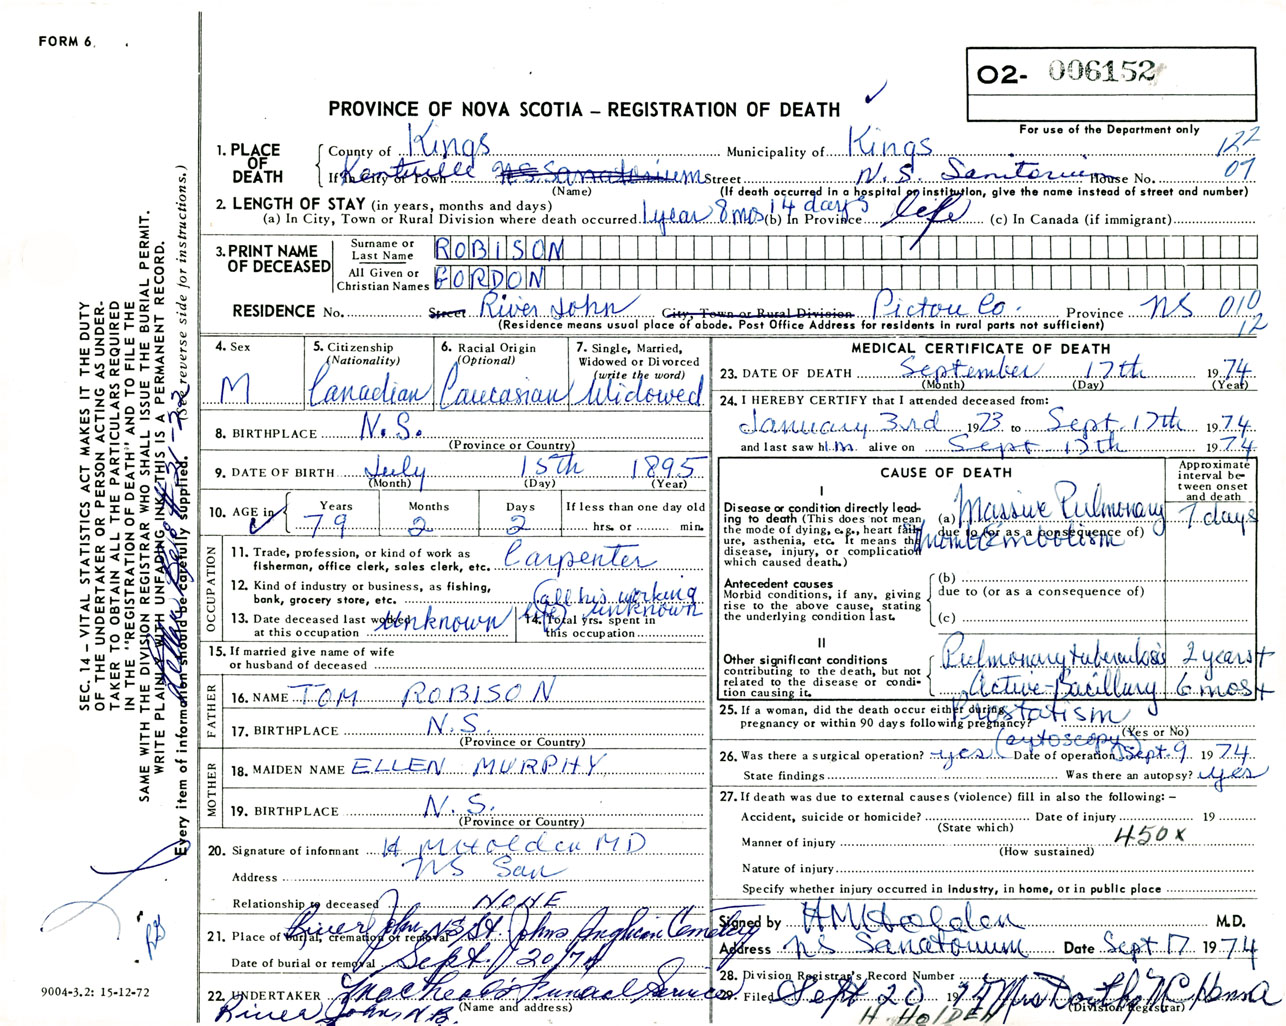 FORM 6
O2- 006152
PROVINCE OF NOVA SCOTIA – REGISTRATION OF DEATH
For use of the Department only
1. PLACE OF DEATH County of Kings Municipality of Kings 122
If in City or Town Kentville N.S. Sanatorium Street N. S. Sanitorium House No. 07
(Name) (If death occurred in a hospital or institution, give the name instead of street and number)
2. LENGTH OF STAY (in years, months and days)
(a) In City, Town or Rural Division where death occurred 1 year 8 mos 14 days (b) In Province life (c) In Canada (if immigrant)
3. PRINT NAME OF DECEASED Surname or Last Name ROBISON
All Given or Christian Names GORDON
RESIDENCE No. Street River John City, Town or Rural Division Pictou Co. Province NS 010
(Residence means usual place of abode. Post Office Address for residents in rural parts not sufficient) 12
4. Sex M
5. Citizenship (Nationality) Canadian
6. Racial Origin (Optional) Caucasian
7. Single, Married, Widowed or Divorced (write the word) Widowed
8. BIRTHPLACE N.S.
(Province or Country)
9. DATE OF BIRTH July 15th 1895
(Month) (Day) (Year)
10. AGE in Years Months Days If less than one day old
79 2 2 hrs. or min.
OCCUPATION
11. Trade, profession, or kind of work as fisherman, office clerk, sales clerk, etc. Carpenter
12. Kind of industry or business, as fishing, bank, grocery store, etc. (all his working life)
13. Date deceased last worked at this occupation Unknown
14. Total yrs. spent in this occupation unknown
15. If married give name of wife or husband of deceased
FATHER
16. NAME TOM ROBISON
17. BIRTHPLACE N.S.
(Province or Country)
MOTHER
18. MAIDEN NAME ELLEN MURPHY
19. BIRTHPLACE N.S.
(Province or Country)
20. Signature of informant H M Holden MD
Address NS San
Relationship to deceased NONE
21. Place of burial, cremation or removal River John, N.S. St. Johns Anglican Cemetery
Date of burial or removal Sept. 20/74
22. UNDERTAKER Funeral Service
(Name and address)
River John,
MEDICAL CERTIFICATE OF DEATH
23. DATE OF DEATH September 17th 1974
(Month) (Day) (Year)
24. I HEREBY CERTIFY that I attended deceased from:
January 3rd 1973 to Sept. 17th 1974
and last saw him alive on Sept 17th 1974
CAUSE OF DEATH
Approximate interval between onset and death
I
Disease or condition directly leading to death (This does not mean the mode of dying, e.g., heart failure, asthenia, etc. It means the disease, injury, or complication which caused death.)
(a) Massive Pulmonary Thromboembolism 7 days
due to (or as a consequence of)
Antecedent causes
Morbid conditions, if any, giving rise to the above cause, stating the underlying condition last.
(b)
due to (or as a consequence of)
(c)
II
Other significant conditions contributing to the death, but not related to the disease or condition causing it.
Pulmonary tuberculosis 2 years+
Active-Bacillary 6 mos+
Prostatism
25. If a woman, did the death occur either during pregnancy or within 90 days following pregnancy?
(Yes or No)
26. Was there a surgical operation? yes (cystoscopy) Date of operation Sept. 9 1974
State findings Was there an autopsy? yes
27. If death was due to external causes (violence) fill in also the following: –
Accident, suicide or homicide? Date of injury 19
(State which)
Manner of injury 450x
(How sustained)
Nature of injury
Specify whether injury occurred in Industry, in home, or in public place
Signed by H M Holden M.D.
Address NS Sanatorium Date Sept 17 1974
28. Division Registrar's Record Number
29. Filed Sept 20 1974 Mrs
(Division Registrar)
H. HOLDEN
SEC. 14 – VITAL STATISTICS ACT MAKES IT THE DUTY
OF THE UNDERTAKER OR PERSON ACTING AS UNDER-
TAKER TO OBTAIN ALL THE PARTICULARS REQUIRED
IN THE "REGISTRATION OF DEATH" AND TO FILE THE
SAME WITH THE DIVISION REGISTRAR WHO SHALL ISSUE THE BURIAL PERMIT.
WRITE PLAINLY WITH UNFADING INK. THIS IS A PERMANENT RECORD.
Every item of information should be carefully supplied. (See reverse side for instructions.)
9004-3.2: 15-12-72